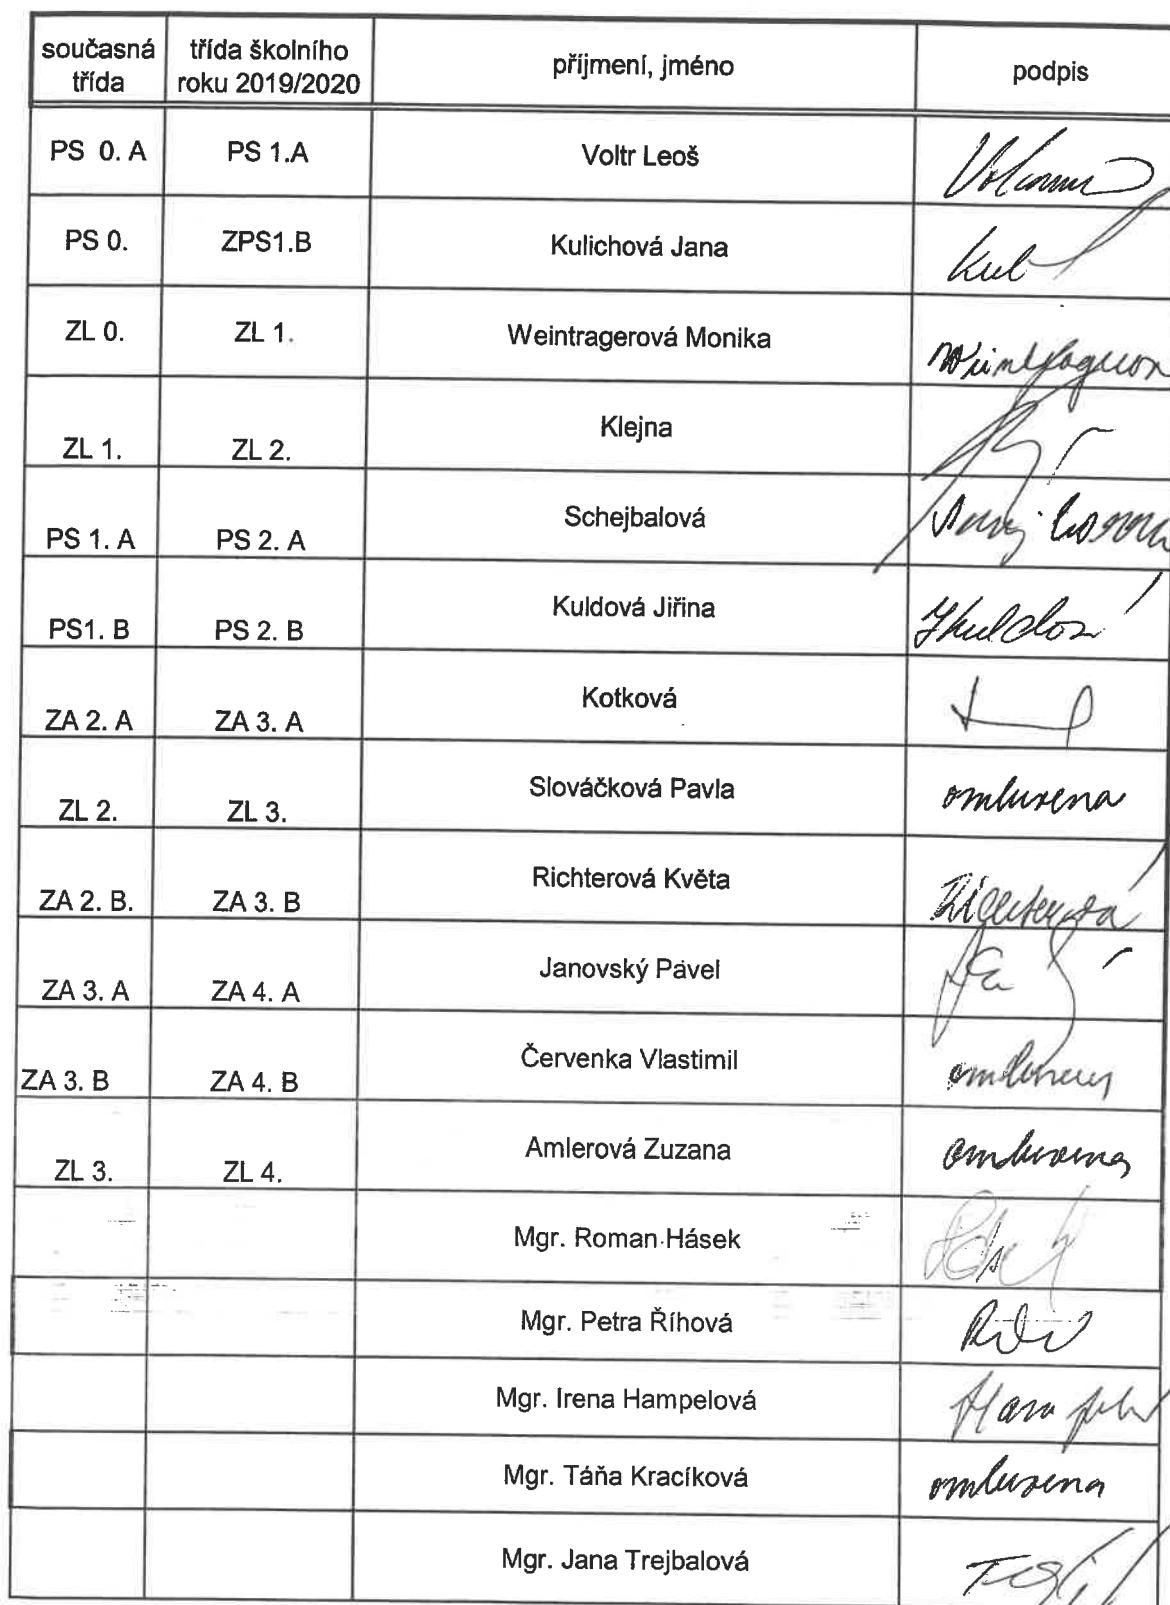 současná třída třída školního roku 2019/2020 příjmení, jméno podpis
PS 0. A PS 1.A Voltr Leoš
PS 0. ZPS1.B Kulichová Jana Kul
ZL 0. ZL 1. Weintragerová Monika
ZL 1. ZL 2. Klejna
PS 1. A PS 2. A Schejbalová
PS1. B PS 2. B Kuldová Jiřina
ZA 2. A ZA 3. A Kotková
ZL 2. ZL 3. Slováčková Pavla omluvena
ZA 2. B. ZA 3. B Richterová Květa Richterová
ZA 3. A ZA 4. A Janovský Pavel
ZA 3. B ZA 4. B Červenka Vlastimil omluven
ZL 3. ZL 4. Amlerová Zuzana omluvena
Mgr. Roman Hásek
Mgr. Petra Říhová
Mgr. Irena Hampelová
Mgr. Táňa Kracíková omluvena
Mgr. Jana Trejbalová